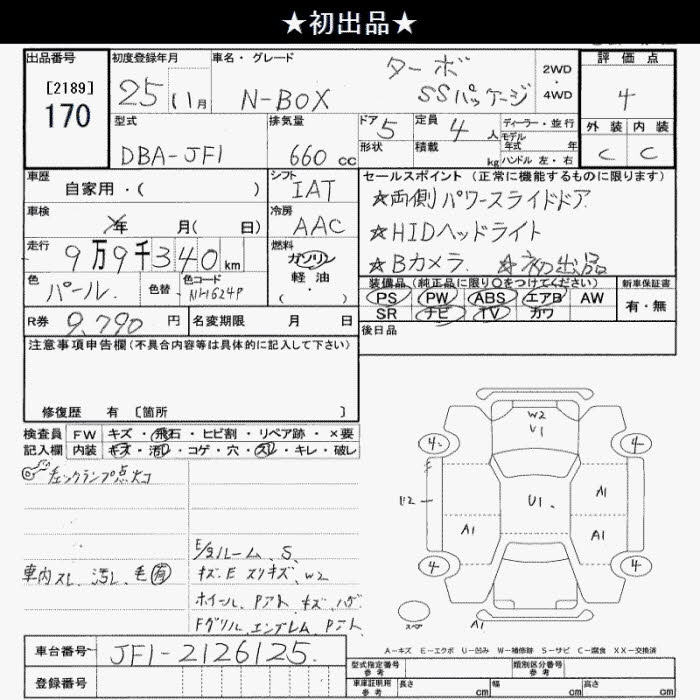 ★初出品★
出品番号 初度登録年月 車名・グレード 評価点
[2189]
170
25 11月 N-BOX ターボ SSパッケージ 2WD・4WD 4
外装 内装
C C
型式 排気量 ドア 定員 ディーラー・並行
DBA-JF1 660cc 5 4人 モデル年式 年
形状 積載 kg ハンドル 左・右
車歴 シフト セールスポイント (正常に機能するものに限ります)
自家用・( ) IAT ☆両側パワースライドドア
車検 冷房
年 月( 日) AAC ☆HIDヘッドライト
走行 燃料
9万9千340km ガソリン ☆Bカメラ ☆初出品
軽油
・( )
色 色替 色コード 装備品 (純正品に限り○をつけてください) 新車保証書
パール. NH624P PS PW ABS エアB AW 有・無
SR ナビ TV カワ
R券 9,790円 名変期限 月 日 後日品
注意事項申告欄 (不具合内容等は具体的に記入して下さい)
修復歴 有 [箇所 ]
検査員 FW キズ・飛石・ヒビ割・リペア跡・×要
記入欄 内装 キズ・汚レ・コゲ・穴・スレ・キレ・破レ
チェックランプ点灯
E/gルーム、S
車内スレ、汚レ、毛有 キズ・E スリキズ、W2
ホイール、Pアト、キズ、ハゲ
Fグリル、エンブレム、Pアト
W2
U1
4 4
A1
U1.
A1 A1
4 4
スペア
A1
A-キズ E-エクボ U-凹み W-補修跡 S-サビ C-腐食 XX-交換済
車台番号 JF1-2126125.
登録番号
型式指定番号 参考 類別区分番号 参考
車庫証明用 参考 長さ cm 幅 cm 高さ cm